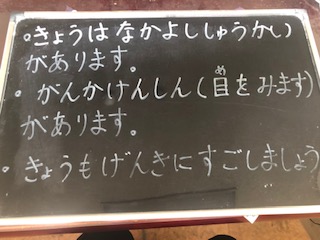 ・きょうはなかよししゅうかい
があります。
・がんかけんしん(目をみます)
があります。
・きょうもげんきにすごしましょう